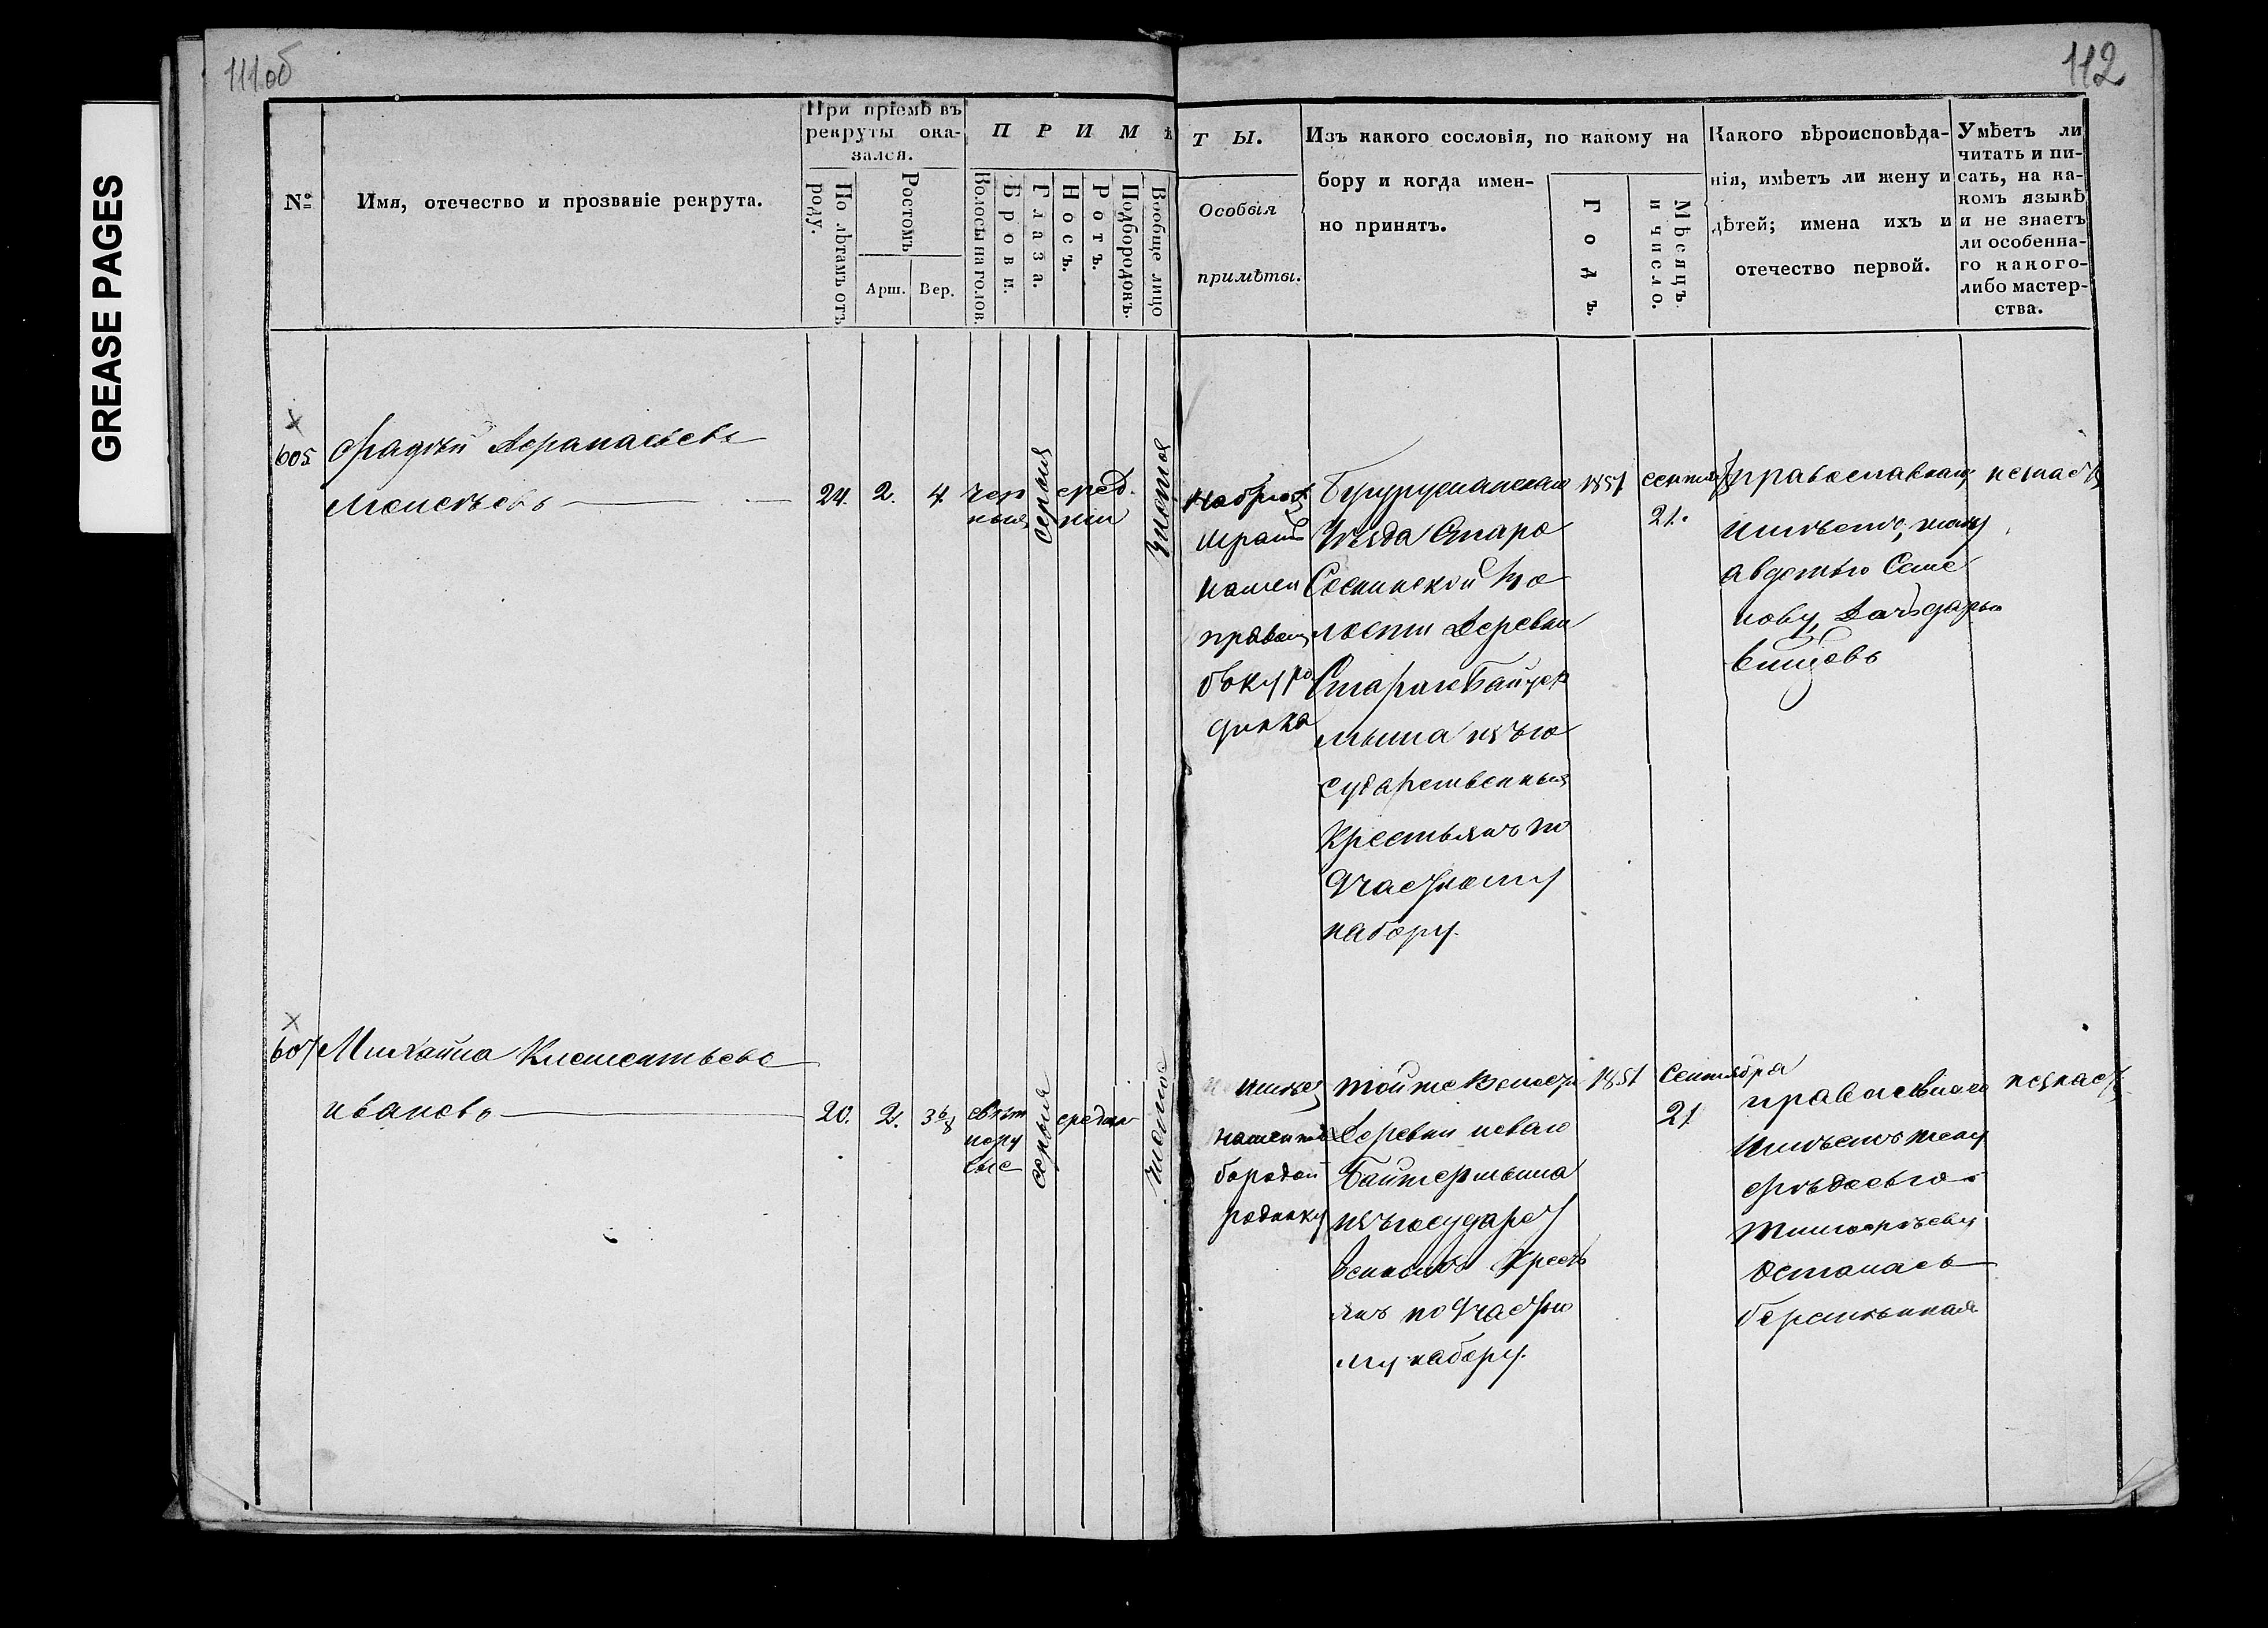 GREASE PAGES
111об
112
№
Имя, отчество и прозваніе рекрута.
При пріемѣ въ
рекруты ока-
зался.
По лѣтамъ отъ
роду.
Ростомъ
Арш.
Вер.
ПРИМѢ
Волосы на голов.
Брови.
Глаза.
Носъ.
Ротъ.
Подбородокъ.
Вообще лицо
ТЫ.
Особыя
примѣты.
Изъ какого сословія, по какому на
бору и когда имен-
но принятъ.
Годъ.
Мѣсяцъ
и число.
Какого вѣроисповѣда-
нія, имѣетъ ли жену и
дѣтей; имена ихъ и
отечество первой.
Умѣетъ ли
читать и пи-
сать, на ка-
комъ языкѣ
и не знаетъ
ли особенна-
го какого-
либо мастер-
ства.
605
Фадѣй Афанасьевъ
Моисѣевъ
24. 2. 4.
чер
ныя
серыя
сред.
нiи
чистоя
на брюхѣ
шрамъ
правомъ
боку ро
динка
Бугурусланскаго
Уѣзда Старо
Соснинской Во
лости Деревни
Стараго
изъ го
сударственныхъ
Крестьянъ по
Частному
набору.
1851
21.
православнаго
имѣетъ жену
Авдотью Семе
нову,
незнаетъ
607
Михайла Клементьевъ
Ивановъ
20. 2. 3 6/8
свѣт
лору
сые
серыя
средни
чистое
бородой
родинку
той же Волости
Деревни новаго
Байтермыша
изъ государст
венныхъ Кресть
янъ по Частно
му набору.
1851
Сентября
21
православнаго
имѣетъ жену
Тимофѣеву
осталась
беремѣнная
незнаетъ